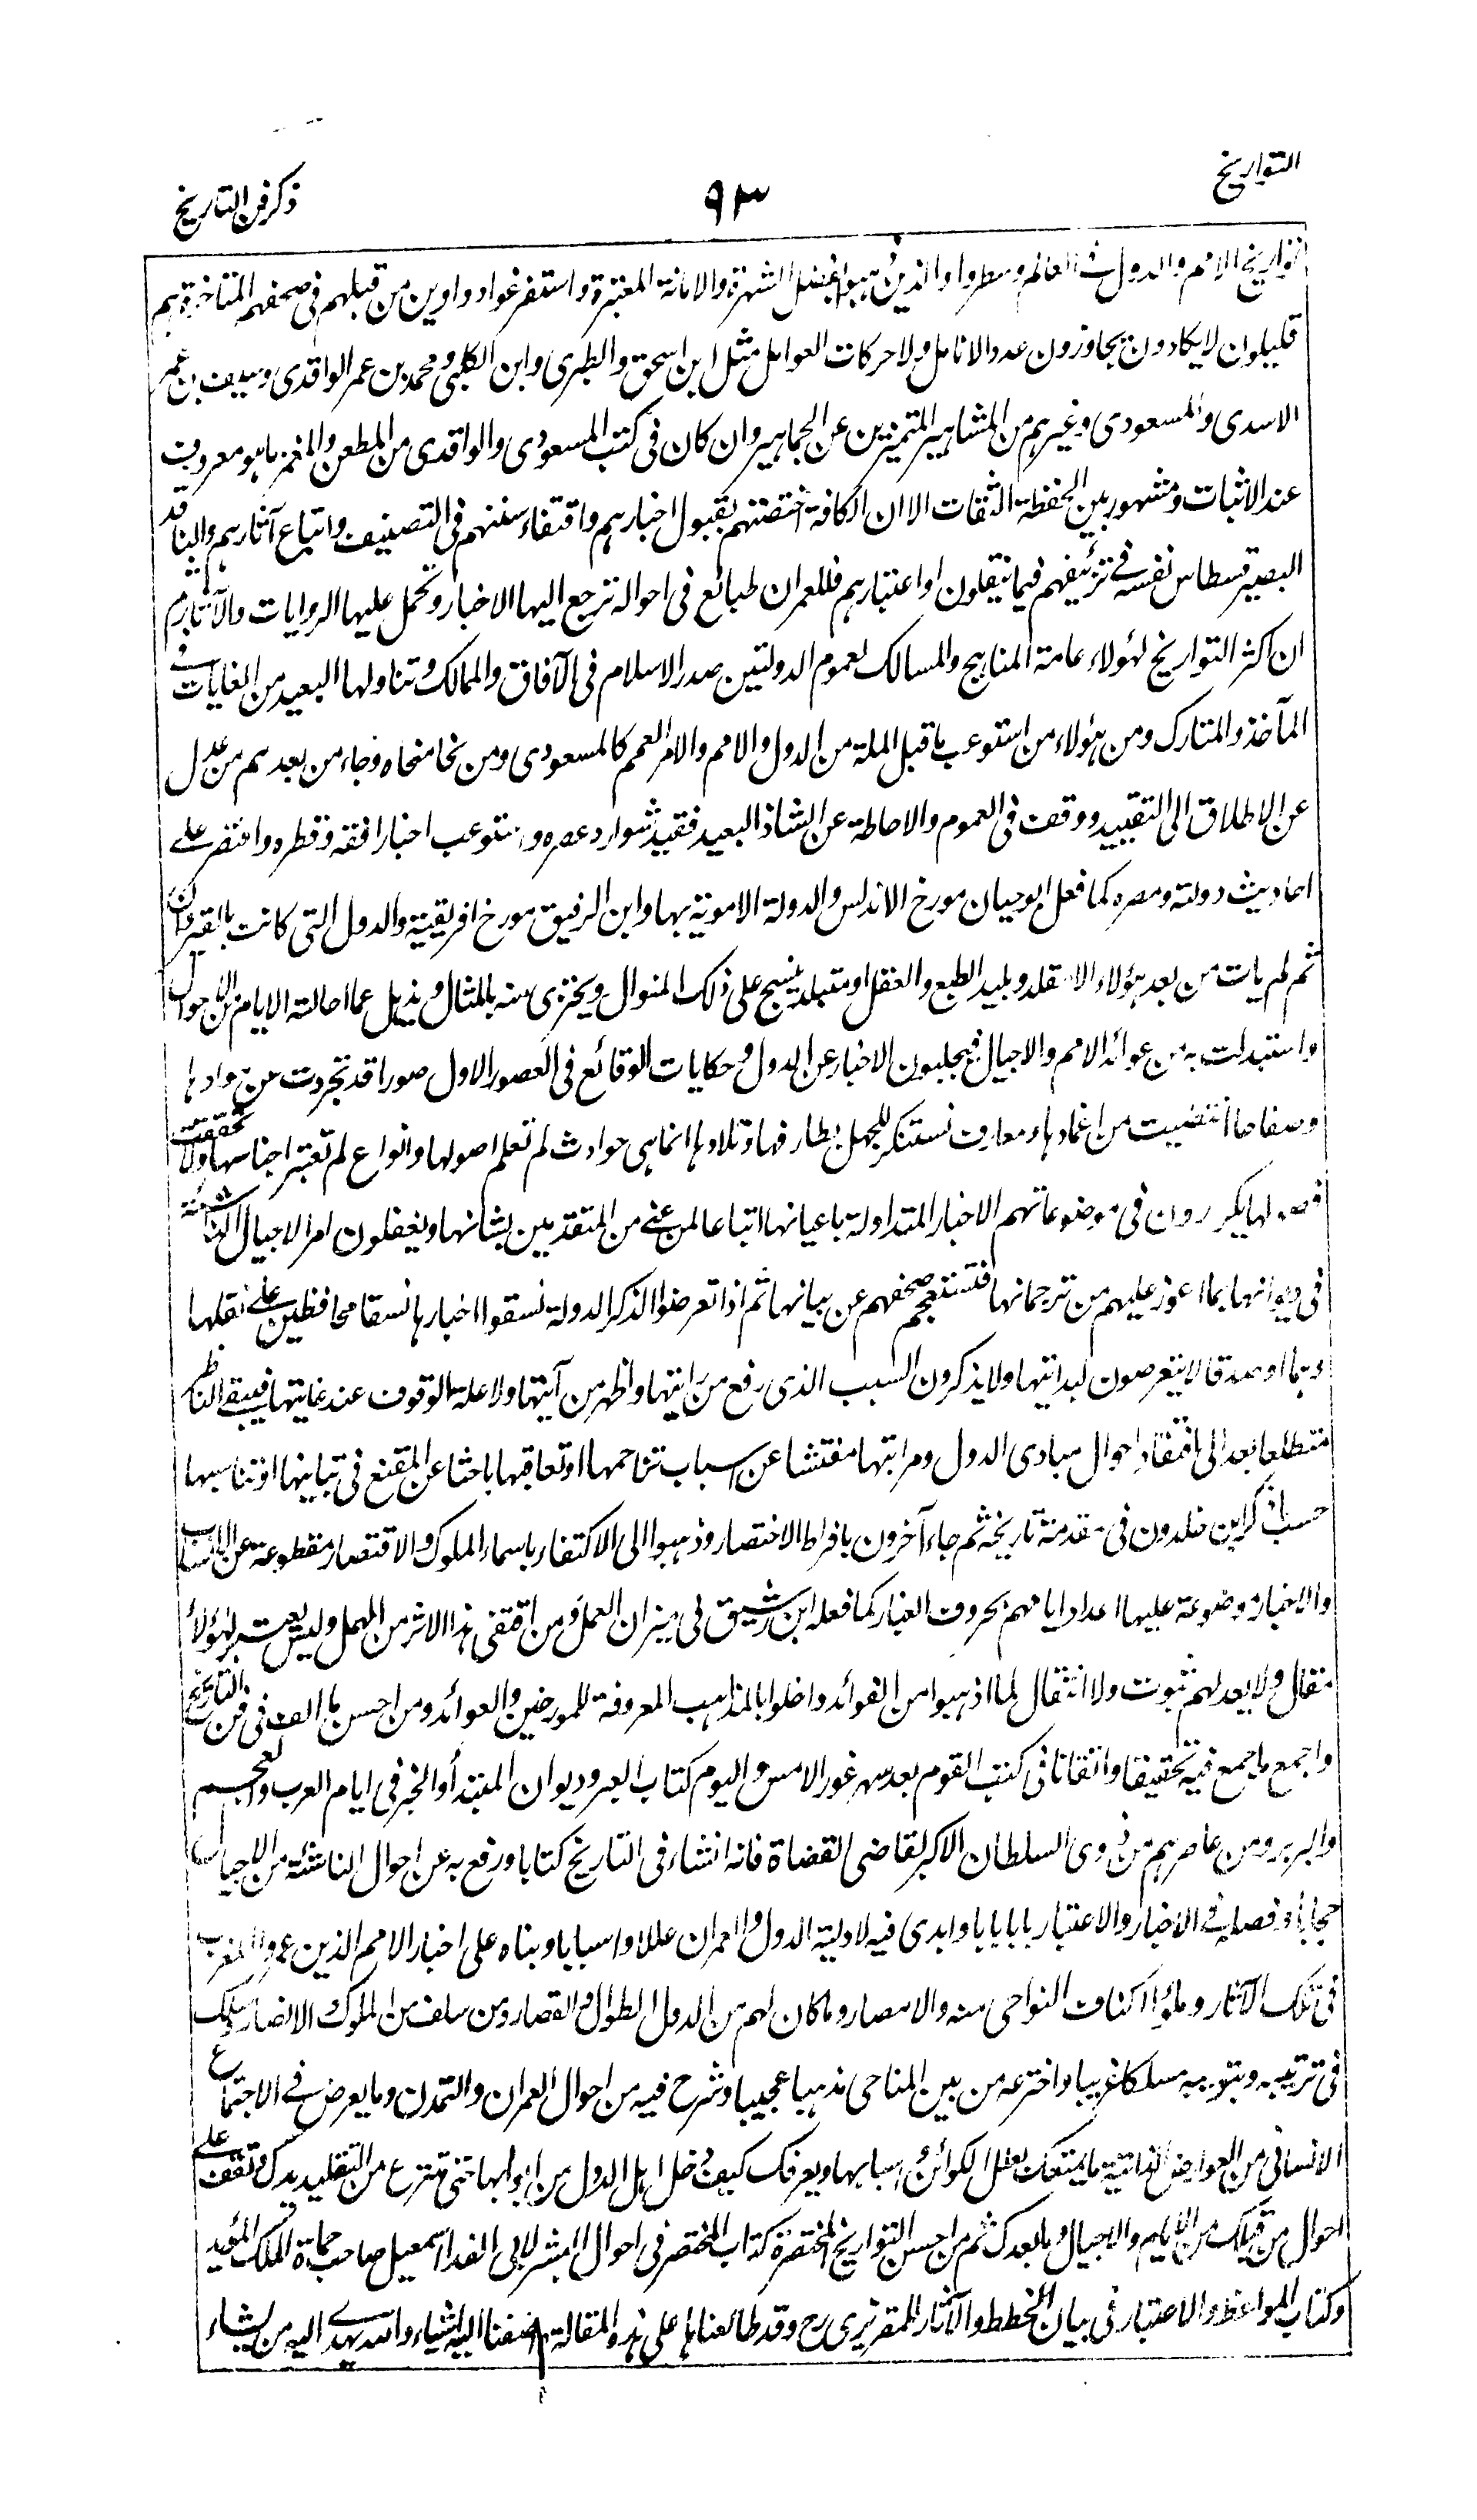 التواريخ
٩٣
ذكر فن التاريخ
تواريخ الامم والدول في العالم وسطروا والذين ذهبوا بفضل الشهرة والامانة المعتبرة واستفرغوا دواوين من قبلهم في صحفهم المتاخرة هم
قليلون لا يكادون يجاوزون عدد الانامل ولا حركات العوامل مثل ابن اسحق والطبري وابن الكلبي ومحمد بن عمر الواقدي وسيف بن عمر
الاسدي والمسعودي وغيرهم من المشاهير المتميزين عن الجماهير وان كان في كتب المسعودي والواقدي من المطعن والمغمز ما هو معروف
عند الاثبات ومشهور بين الحفظة الثقات الا ان الكافة اختصتهم بقبول اخبارهم واقتفاء سننهم في التصنيف واتباع آثارهم والناقد
البصير قسطاس نفسه في تزئيفهم فيما ينقلون او اعتبارهم فللعمران طبائع في احواله ترجع اليها الاخبار وتحمل عليها الروايات والآثار ثم
ان اكثر التواريخ لهؤلاء عامة المناهج والمسالك لعموم الدولتين صدر الاسلام في الآفاق والممالك وتناولها البعيد من الغايات في
المآخذ والمتارك ومن هؤلاء من استوعب ما قبل الملة من الدول والامم والامر العمم كالمسعودي ومن نحا منحاه وجاء من بعدهم من عدل
عن الاطلاق الى التقييد ووقف في العموم والاحاطة عن الشاذ البعيد فقيد شوارد عصره واستوعب اخبار افقه وقطره واقتصر على
احاديث دولته ومصره كما فعل ابو حيان مورخ الاندلس والدولة الاموية بها وابن الرفيق مورخ افريقية والدول التي كانت بالقيروان
ثم لم يات من بعد هؤلاء الا مقلد وبليد الطبع والعقل او متبلد ينسج على ذلك المنوال ويحتذي منه بالمثال ويذهل عما احالته الايام من الاحوال
واستبدلت به من عوائد الامم والاجيال فيجلبون الاخبار عن الدول وحكايات الوقائع في العصور الاول صورا قد تجردت عن موادها
وصفاحا انتضيت من اغمادها ومعارف تستنكر للجهل بطارفها وتلادها انما هي حوادث لم تعلم اصولها وانواع لم تعتبر اجناسها ولا تحققت
فصولها يكررون في موضوعاتهم الاخبار المتداولة باعيانها اتباعا لمن عنى من المتقدمين بشانها ويغفلون امر الاجيال الناشئة
في ديوانها بما اعوز عليهم من ترجمانها فتستعجم صحفهم عن بيانها ثم اذا تعرضوا لذكر الدولة نسقوا اخبارها نسقا محافظين على نقلها
وهما او صدقا لا يتعرضون لبدايتها ولا يذكرون السبب الذي رفع من رايتها واظهر من آيتها ولا علة الوقوف عند غايتها فيبقى الناظر
متطلعا بعد الى افتقاد احوال مبادي الدول ومراتبها مفتشا عن اسباب تزاحمها او تعاقبها باحثا عن المقنع في تباينها او تناسبها
حسبما ذكر ابن خلدون في مقدمة تاريخه ثم جاء آخرون بافراط الاختصار وذهبوا الى الاكتفاء باسماء الملوك والاقتصار مقطوعة عن الانساب
والاخبار موضوعة عليها اعداد ايامهم بحروف الغبار كما فعله ابن رشيق في ميزان العمل ومن اقتفى هذا الاثر من الهمل وليس يعتبر لهؤلاء
مقال ولا يعد لهم ثبوت ولا انتقال لما اذهبوا من الفوائد واخلوا بالمذاهب المعروفة للمورخين والعوائد ومن احسن ما الف في فن التاريخ
واجمع ما جمع فيه تحقيقا واتقانا في كتب القوم بعد سهر غور الامس واليوم كتاب العبر وديوان المبتدأ والخبر في ايام العرب والعجم
والبربر ومن عاصرهم من ذوي السلطان الاكبر لقاضي القضاة فانه انشاء في التاريخ كتابا ورفع به عن احوال الناشئة من الاجيال
حجابا وفصله في الاخبار والاعتبار بابا بابا وابدى فيه لاولية الدول والعمران عللا واسبابا وبناه على اخبار الامم الذين عمروا المغرب
في تلك الآثار وملؤا اكناف النواحي منه والامصار وما كان لهم من الدول الطوال والقصار ومن سلف من الملوك والانصار وسلك
في ترتيبه وتبويبه مسلكا غريبا واخترعه من بين المناحي مذهبا عجيبا وشرح فيه من احوال العمران والتمدن وما يعرض في الاجتماع
الانساني من العوارض الذاتية ما يمتعك بعلل الكوائن واسبابها ويعرفك كيف دخل اهل الدول من ابوابها حتى تنزع من التقليد يدك وتقف على
احوال من قبلك من الايام والاجيال وما بعدك ثم من احسن التواريخ المختصرة كتاب المختصر في احوال البشر لابي الفدا اسمعيل صاحب حماة الملك المؤيد
وكتاب المواعظ والاعتبار في بيان الخطط والآثار للمقريزي رح وقد طالعناها على هذه المقالة واضفنا اليه اشياء والله يهدي اليه من يشاء